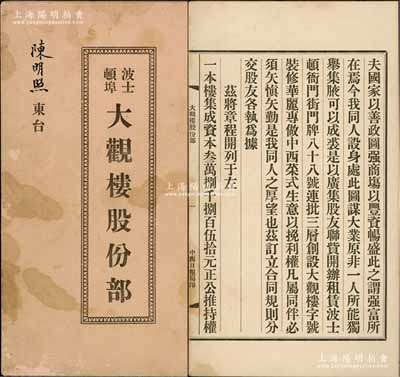 上海陽明拍賣
陳明照 東台
波士頓埠
大觀樓股份部
夫國家以善政圖强商塲以豐資暢盛此之謂强富所
在焉今我同人設身處此圖謀大業原非一人所能獨
舉集腋可以成裘是以廣集股友聯賞開辦租賃波士
頓衙門街門牌八十八號連批三層創設大觀樓字號
裝修華麗專做中西菜式生意以挽利權凡屬同伴必
須矢慎矢勤是我同人之厚望也茲訂立合同規則分
交股友各執爲據
茲將章程開列于左
一本樓集成資本叁萬捌千捌百伍拾元正公推持權
大觀樓股份部
中西日報局印
上海陽明拍賣